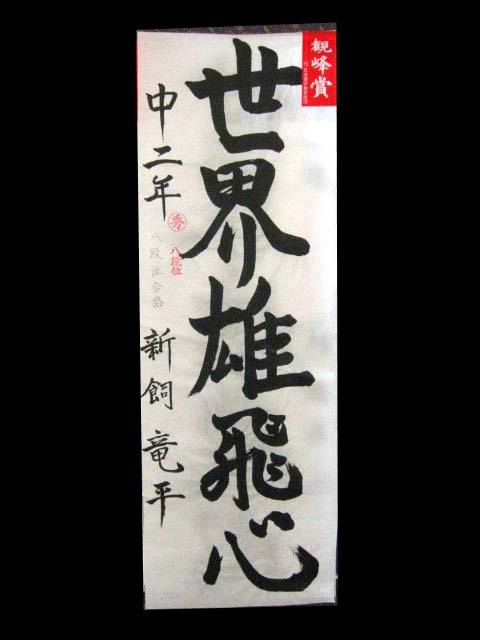 観峰賞
世界雄飛心
中二年 新飼竜平
秀
八段位
八段位合格